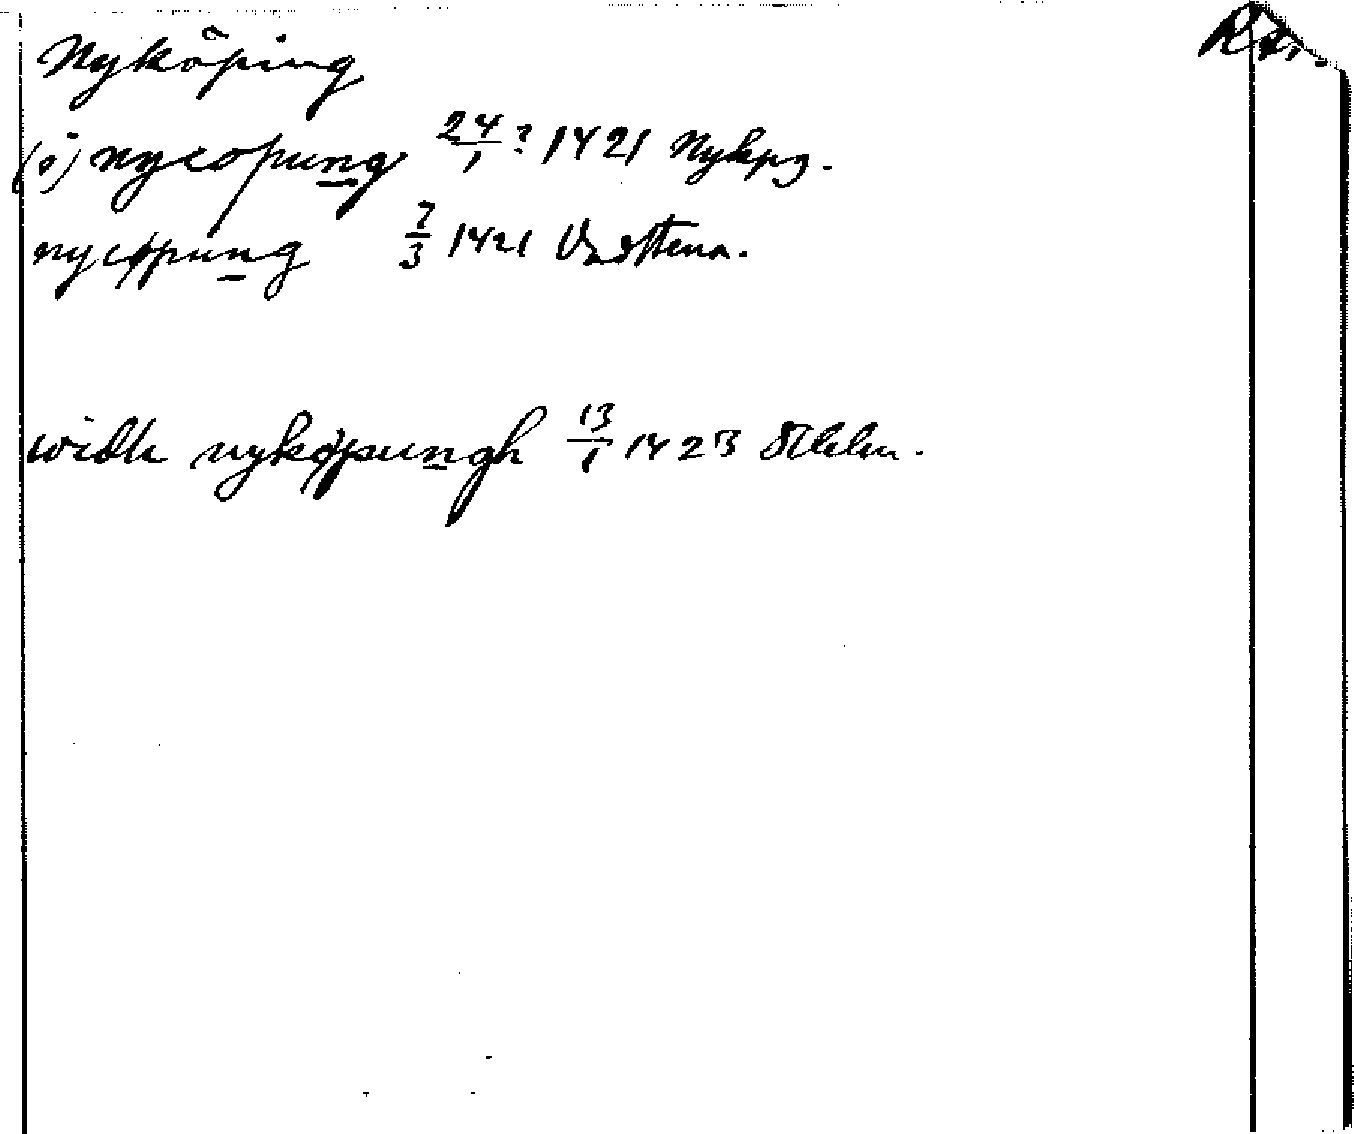 Nyköping
(i) nycopung 24/1 ? 1421 Nykpg.
nycøpung 7/3 1421 Vadstena.
widh nykøpungh 13/1 1423 Sthlm.